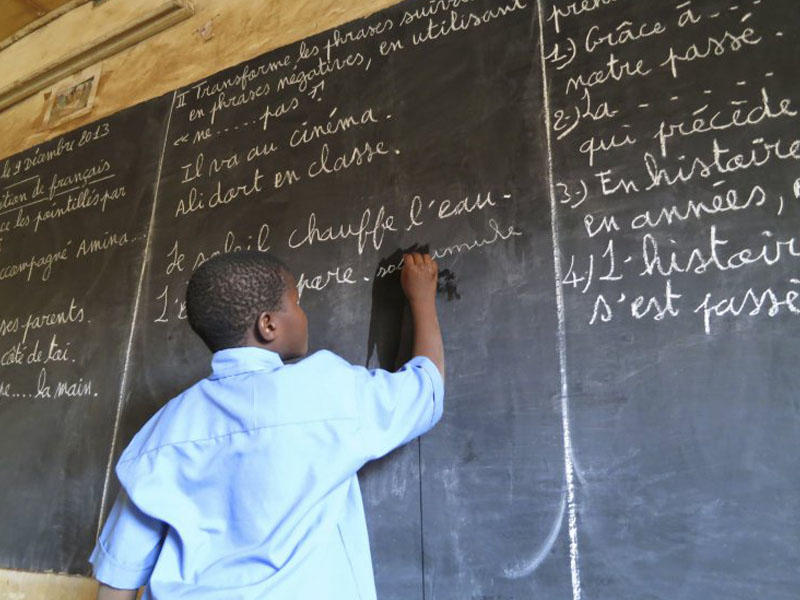 le 9 Décembre 2013
de français
ce les pointillés par
accompagné Amina...
ses parents.
côté de toi.
la main.
II Transforme les phrases
en phrases négatives, en utilisant
« ne ...... pas »!
Il va au cinéma.
Ali dort en classe.
Le soleil chauffe l'eau.
1) Grâce à ....
notre passé.
2) La .......
qui précède
3) En histoire
en années,
4) L'histoire
s'est passé